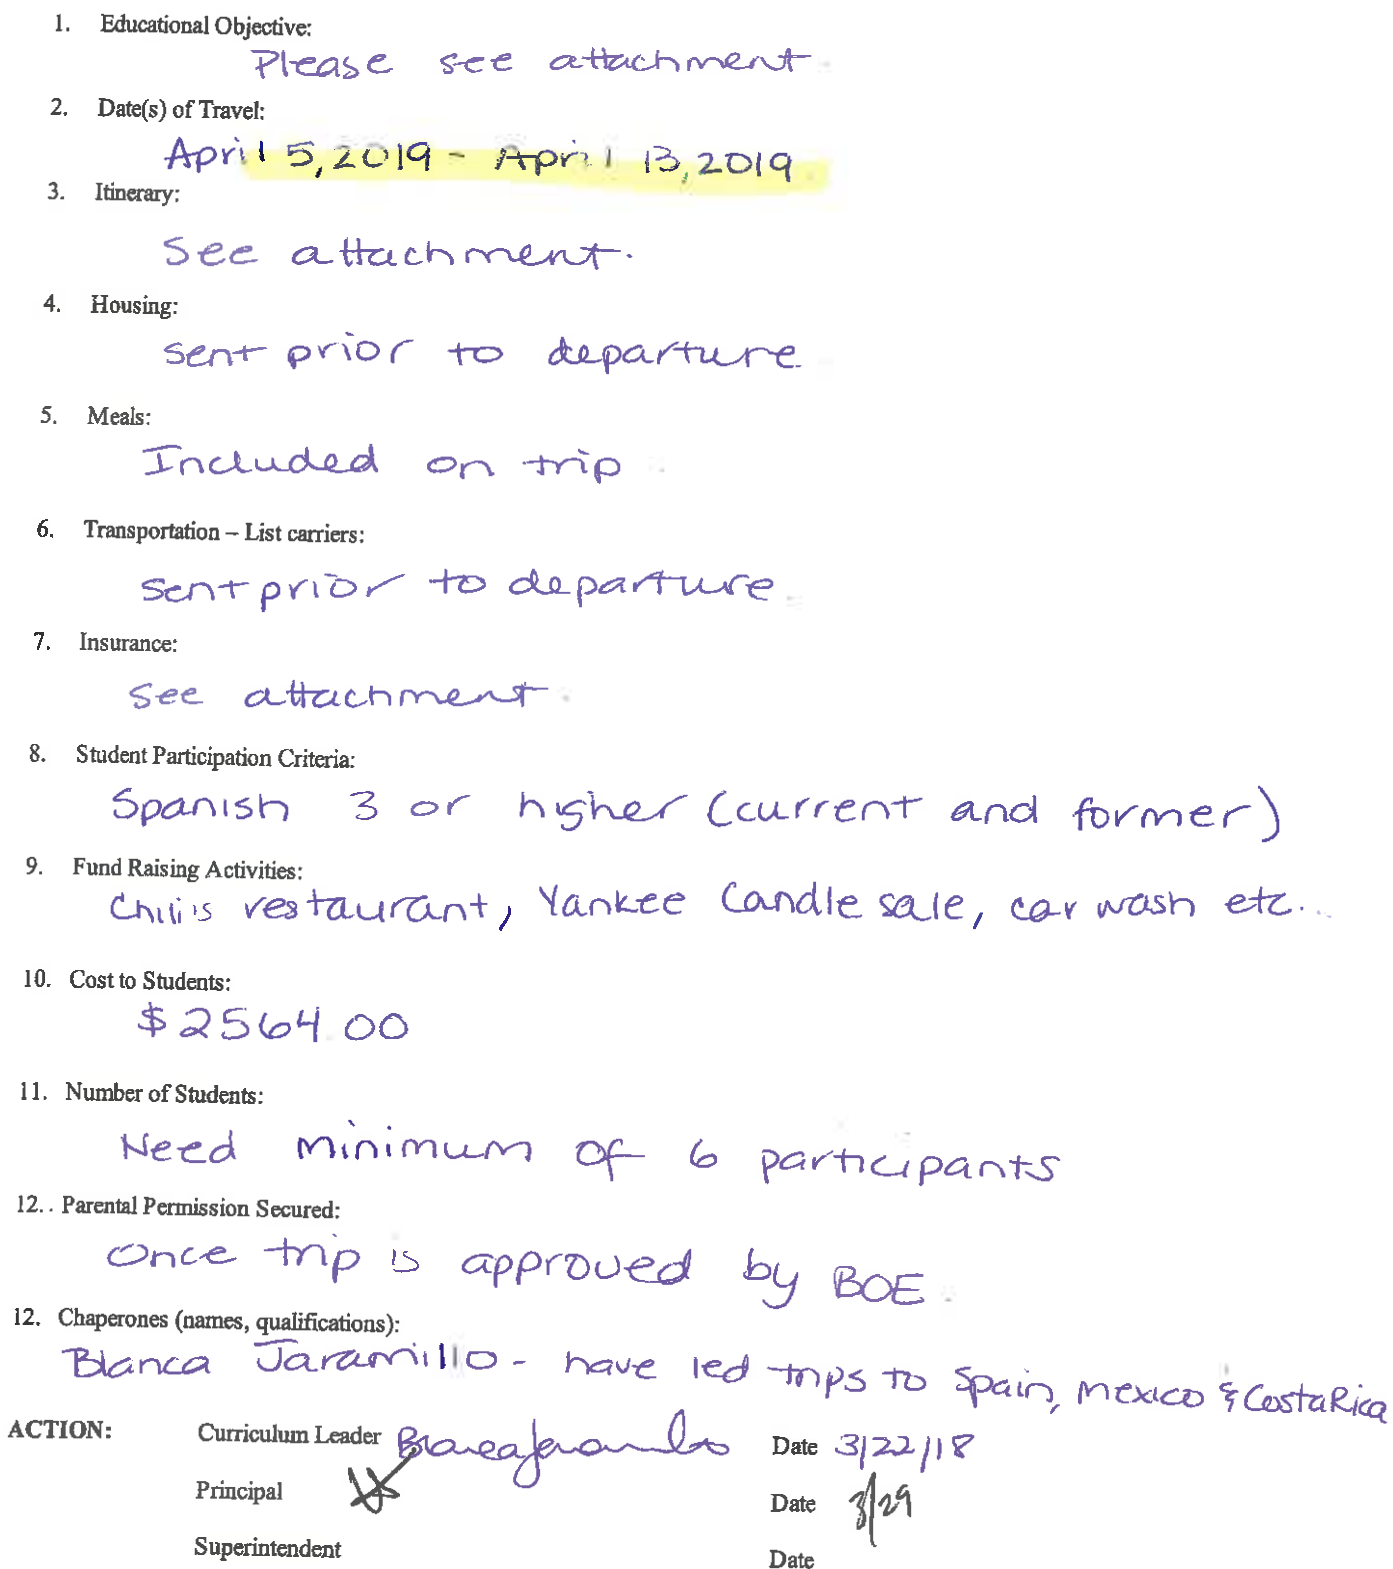 1. Educational Objective:
Please see attachment
2. Date(s) of Travel:
April 5, 2019 - April 13, 2019
3. Itinerary:
See attachment.
4. Housing:
sent prior to departure
5. Meals:
Included on trip
6. Transportation – List carriers:
sent prior to departure
7. Insurance:
see attachment
8. Student Participation Criteria:
Spanish 3 or higher (current and former)
9. Fund Raising Activities:
Chili's restaurant, Yankee Candle sale, car wash etc...
10. Cost to Students:
$2564.00
11. Number of Students:
Need minimum of 6 participants
12. . Parental Permission Secured:
Once trip is approved by BOE
12. Chaperones (names, qualifications):
Blanca Jaramillo - have led trips to Spain, Mexico & Costa Rica
ACTION: Curriculum Leader Blanca Jaramillo Date 3/22/18
Principal Date 3/29
Superintendent Date